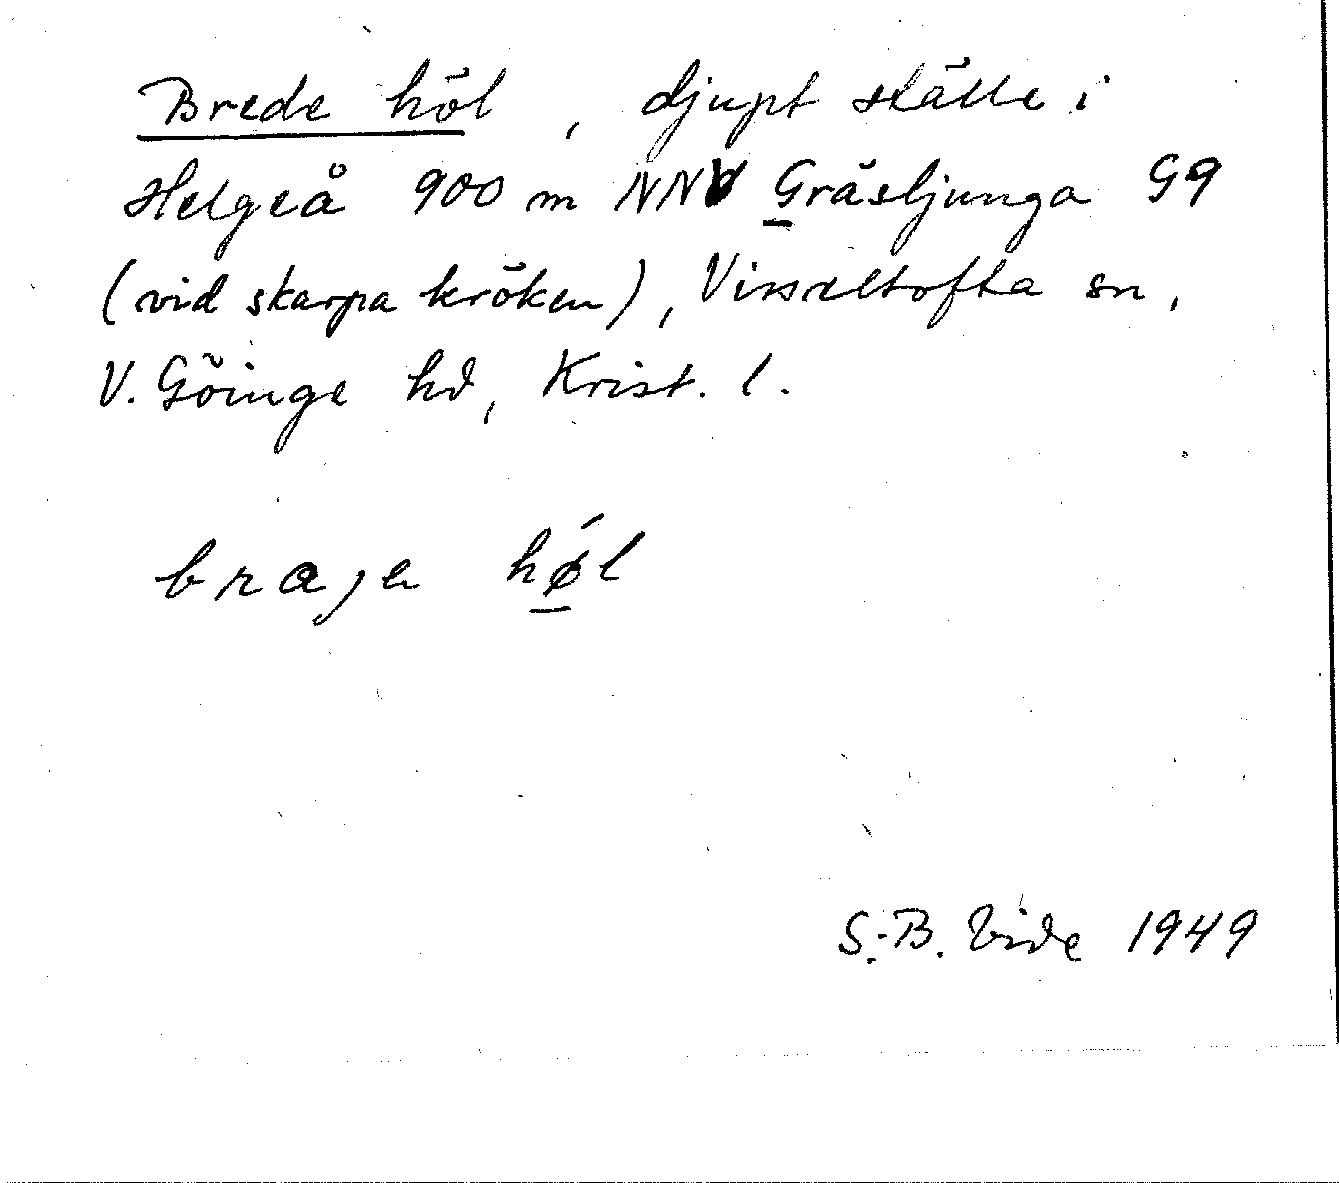 Brede höl, djupt ställe i
Helgeå 900 m NNV Gräsljunga G9
(vid skarpa kröken), Visseltofta sn,
V. Göinge hd, Krist. l.
høl
S.-B. Vide 1949